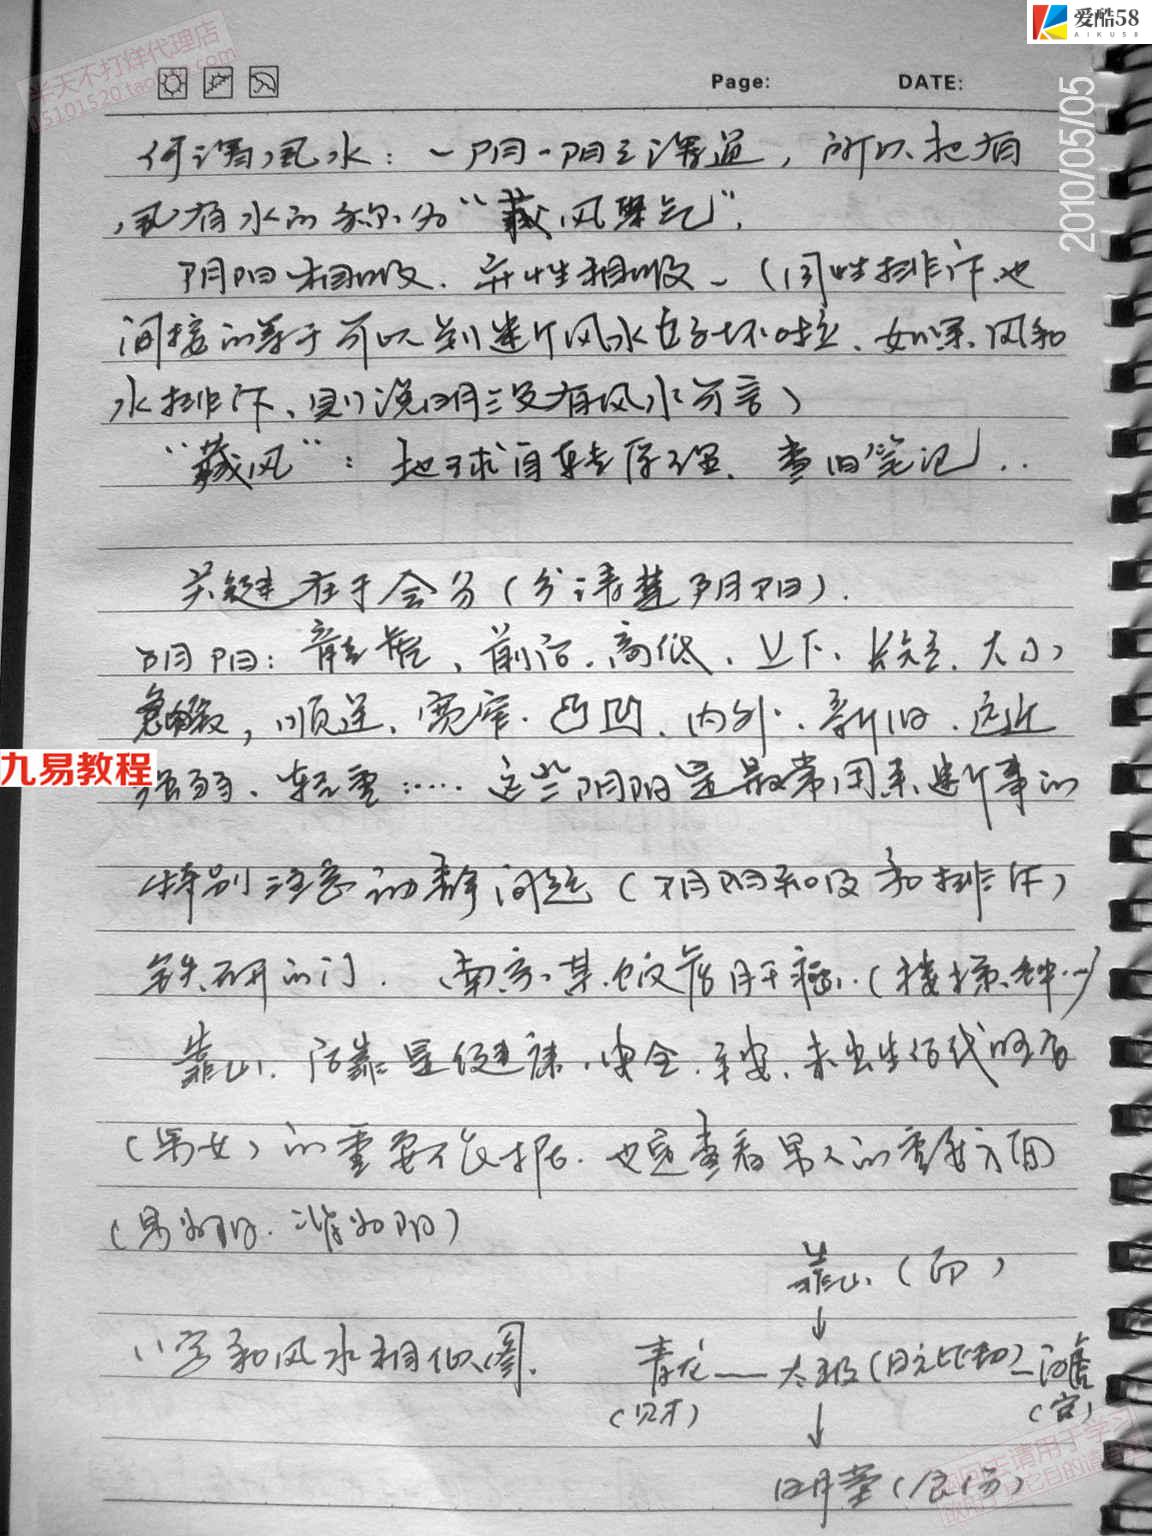 爱酷58
AIKU58
半天不打烊代理店
15101520.taobao.com
Page: DATE:
2010/05/05
何谓风水：一阴一阳之谓道，所以把有
风有水的称为“藏风聚气”.
阴阳相吸.异性相吸.（同性排斥.也
间接的等于可以判断风水好坏啦.如果.风和
水排斥、则说明没有风水可言）
“藏风”：地球自转原理.查旧笔记..
关键在于会分（分清楚阴阳）.
阴阳：龙虎、前后.高低.上下.长短.大小
急缓，顺逆、宽窄.凸凹.内外.新旧.远近
九易教程
强弱、轻重……这些阴阳是最常用来断事的
特别注意动静问题（阴阳和排斥）
的门.南京.某.饭店.（楼梯
靠山.后靠是健康.安全.平安.未出生后代
（男女）的重要依据.也是查看男人的重要方面
（男为阳.
靠山（印）
↓
八字和风水相似图.
青龙——太极（日元比劫）—白虎
（财） （官）
↓
明堂（食伤）
请用于学习